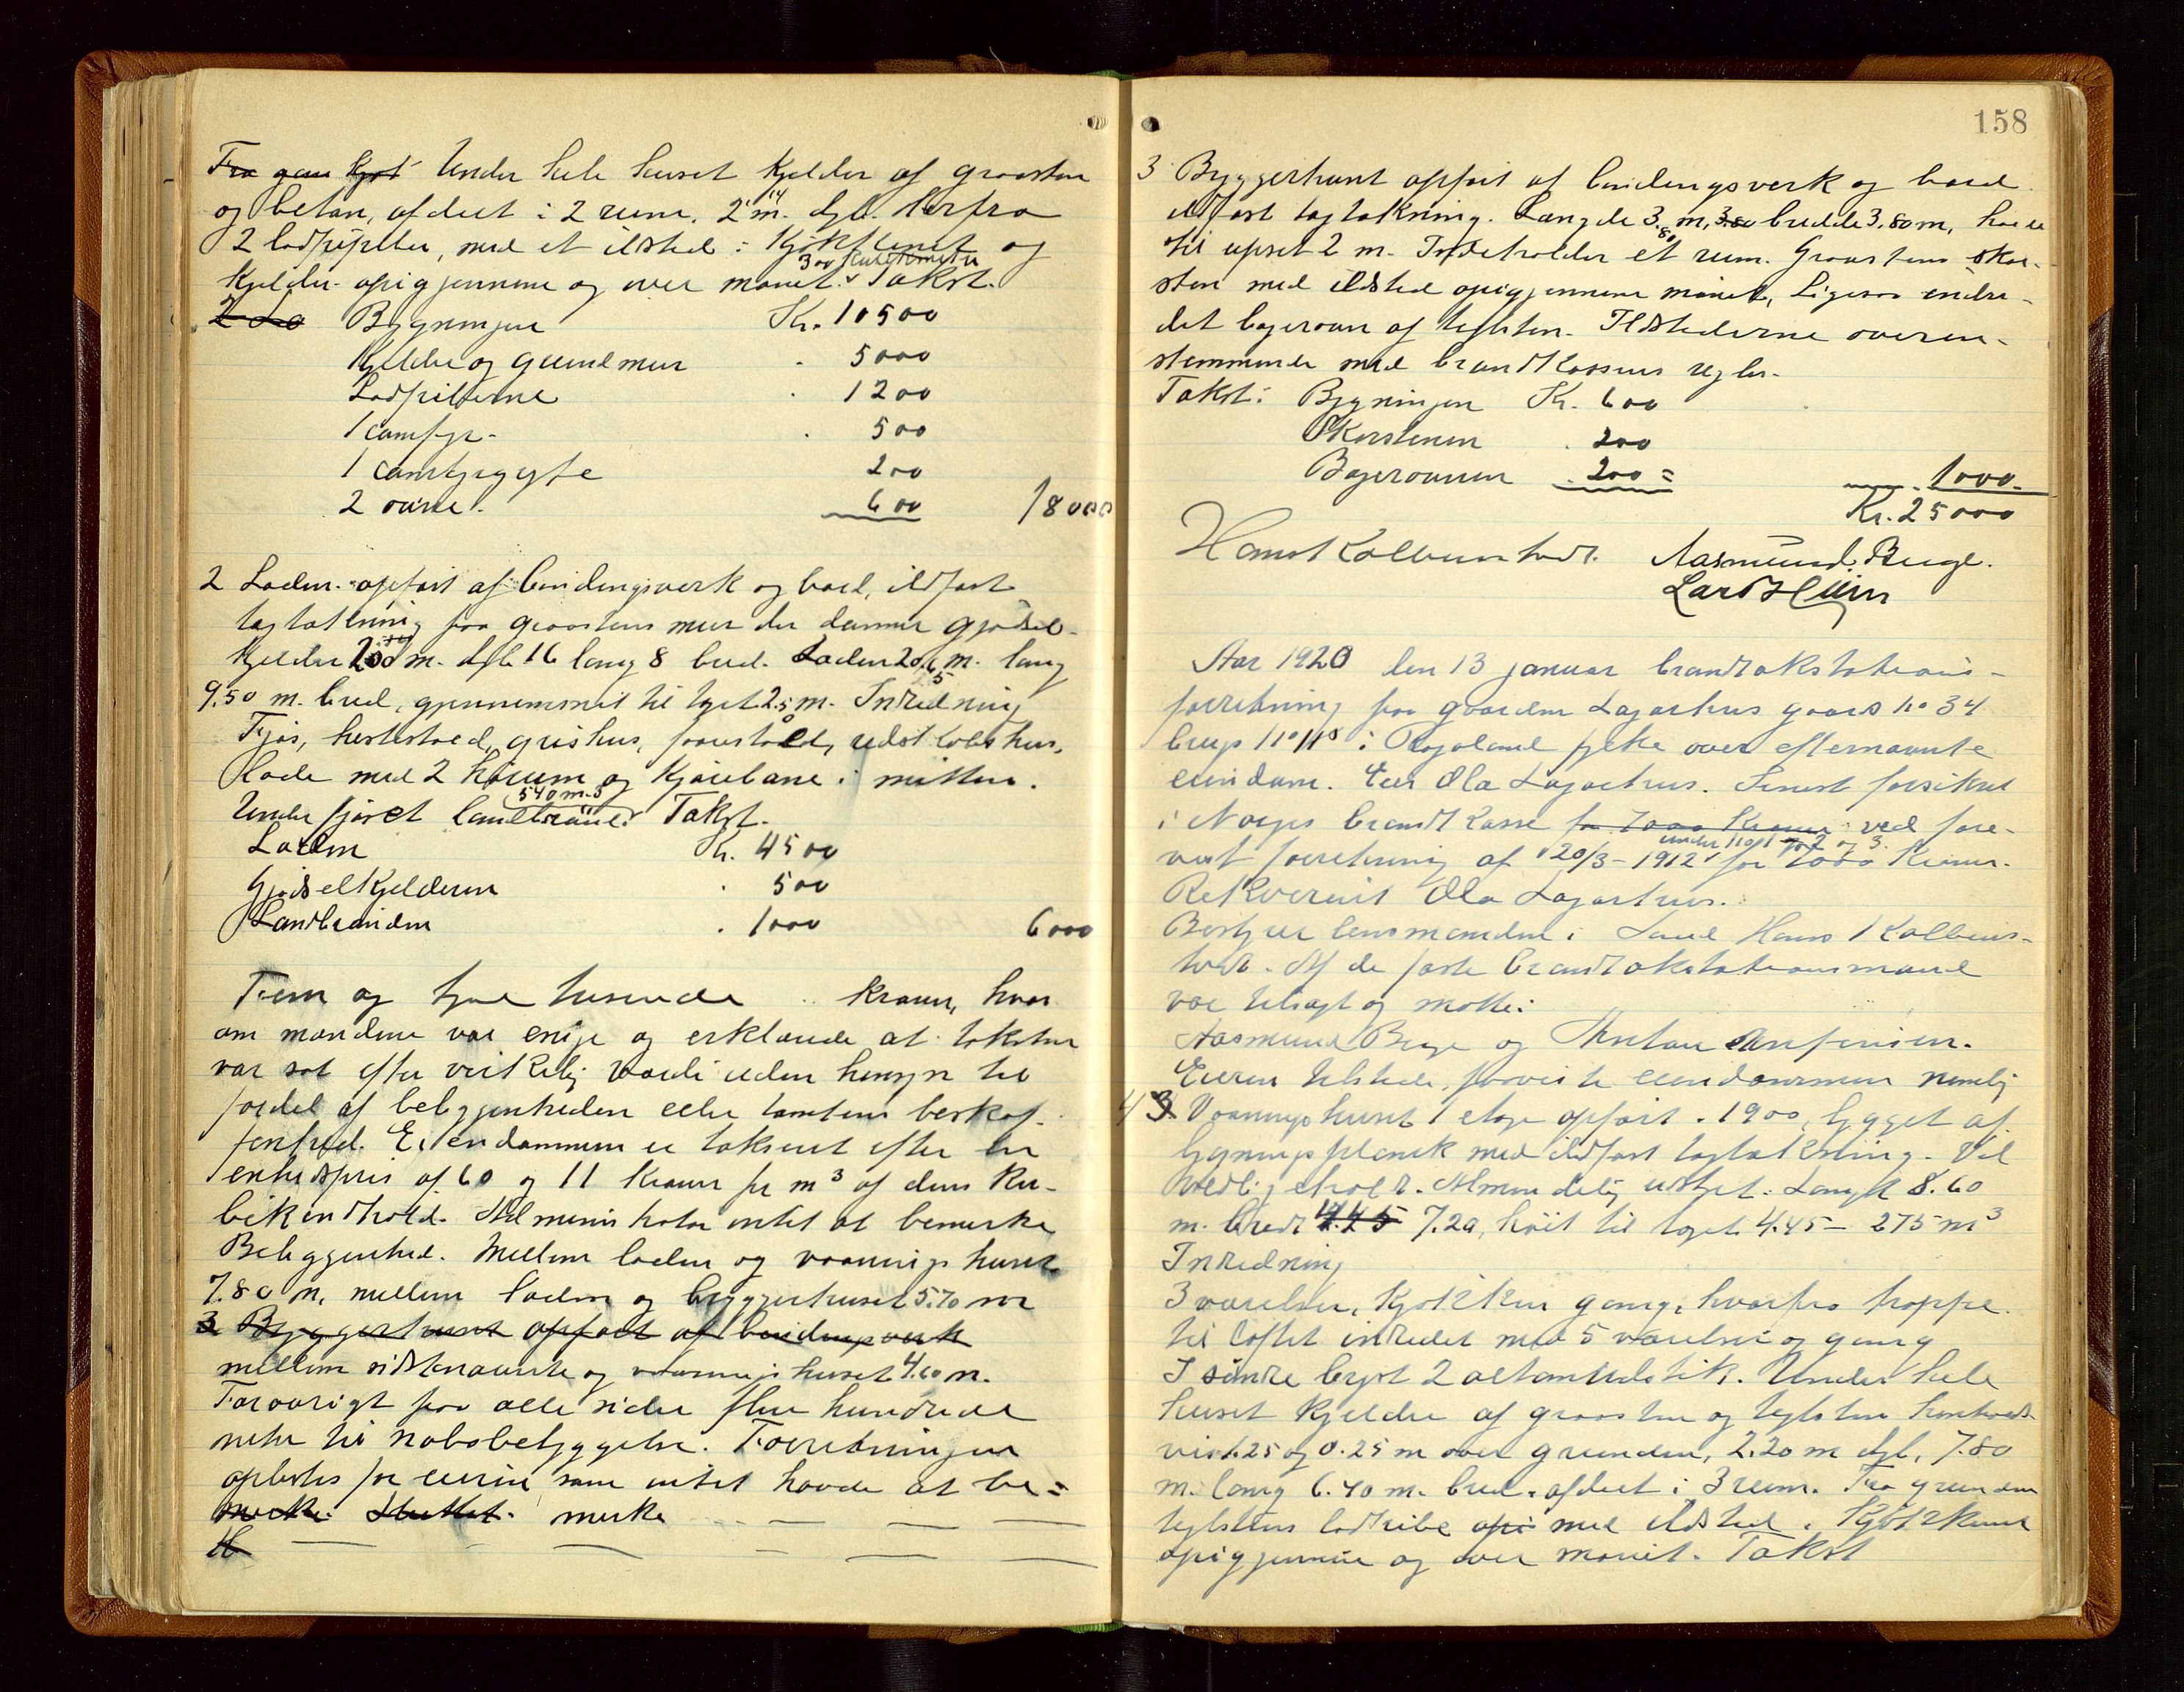 Fra gan kjøt Under hele huset kjelder af graasten
og beton, afdeet i 2 rum. 2.14 m. dyb. Herfra
2 lodpipiber, med et ildsted i kjøkkenet og
kjelder opigjennem og over mønet. 300 kubikmeter Takst.
2 Lo Bygningen Kr. 10500
Kjelder og grundmur - 5000
Lodpiberne . 1200
1 comfyr - . 500
1 comfyrgryte 200
2 ovne. 600 18000
2 Loden. opført af bindingsverk og bord, ildfast
tagtækning paa graastens mur der danner gjødsel-
kjelder m. dyb 16 lang 8 bred. Loden 20.6 m. lang
9.50 m. bred, gjennemsnit til taget 2.5 m. Inredning
Fjøs, hestestald, grishus, faarestald, redskabshus,
Lade med 2 hørum og kjørebane i mitten.
Under fjøset landbrønd 540 m3 Takst.
Loden Kr. 4500
Gjødselkjelderen . 500
Landbrønden . 1000 6000
Fem og tyve tusende kroner, hvor
om mændene var enige og erklærede at taksten
var sat efter virkelig værdi uden hensyn til
fordel af beliggenheden eller tomtens beskaf-
fenhed. Eiendommen er takseret efter en
enhedspris af 60 og 11 kroner pr m3 af dens ku-
bikindhold. Administrator intet at bemerke
Beliggenhed. Mellem loden og vaanings huset
7.80 m, mellem loden og bryggerhuset 5.70 m
3 Bryggerhuset opført af bindingsverk
mellem sidstnævnte og vaanings huset 4.60 m.
Forøvrigt paa alle sider flere hundrede
meter til nabobebyggelse. Forretningen
oplestes for eieren som intet havde at be=
merke. Sluttet. merke
H
158
3 Bryggerhuset opført af bindingsverk og bord
ildfast tagtækning. Længde 3.80 m, 3.80 bredde 3.80 m, høide
til upset 2 m. Indeholder et rum. Graastens skor-
sten med ildsted opigjennem mønet, Ligesaa indre-
det bagerovn af teglsten. Ildstederne overen-
stemmende med brandkassens regler.
Takst: Bygningen Kr. 600
Skorstenen . 200
Bagerovnen . 200 = 1000.
Kr. 25000
Hans Kolbenstvedt. Aasmund Berge.
Aar 1920 den 13 januar brandtakstations-
forretning paa gaarden Lagarhus gaards no 34
brugs no i Rogaland fylke over efternævnte
eiendom. Eier Ola Lagarhus. Senest forsikret
i Norges brandkasse for 7000 Kroner ved fore-
vist forretning af 20/3-1912 under no 1 og 2 og 3. for 7000 Kroner.
Rekvirent Ola Lagarhus.
Bestyrer lensmanden i Sand Hans Kolbens-
tvedt. Af de faste brandtakstationsmænd
var tilsagt og møtte:
Aasmund Berge og Anton Anfensen.
Eieren tilstede, paaviste eiendommen nemlig
4 3 Vaaningshuset 1 etage opført i 1900, bygget af
bygningsplank med ildfast tagtækning. Vel
vedligeholdt. Almindelig utstyr. Længde 8.60
m. bredt 4.45 7.20, høit til taget 4.45 - 275 m3
Inredning
3 værelser, kjøkken gang, hvorfra trappe
til loftet indredet med 5 værelser og gang
I søndre bryst 2 Under hele
huset kjelder af graasten og teglsten henholds-
vis 1.25 og 0.25 m over grunden, 2.20 m dyb, 7.80
m. lang 6.40 m. bred. afdeet i 3 rum. Fra grunden
teglstens lodpibe opi med ildsted i kjøkkenet
opigjennem og over mønet. Takst